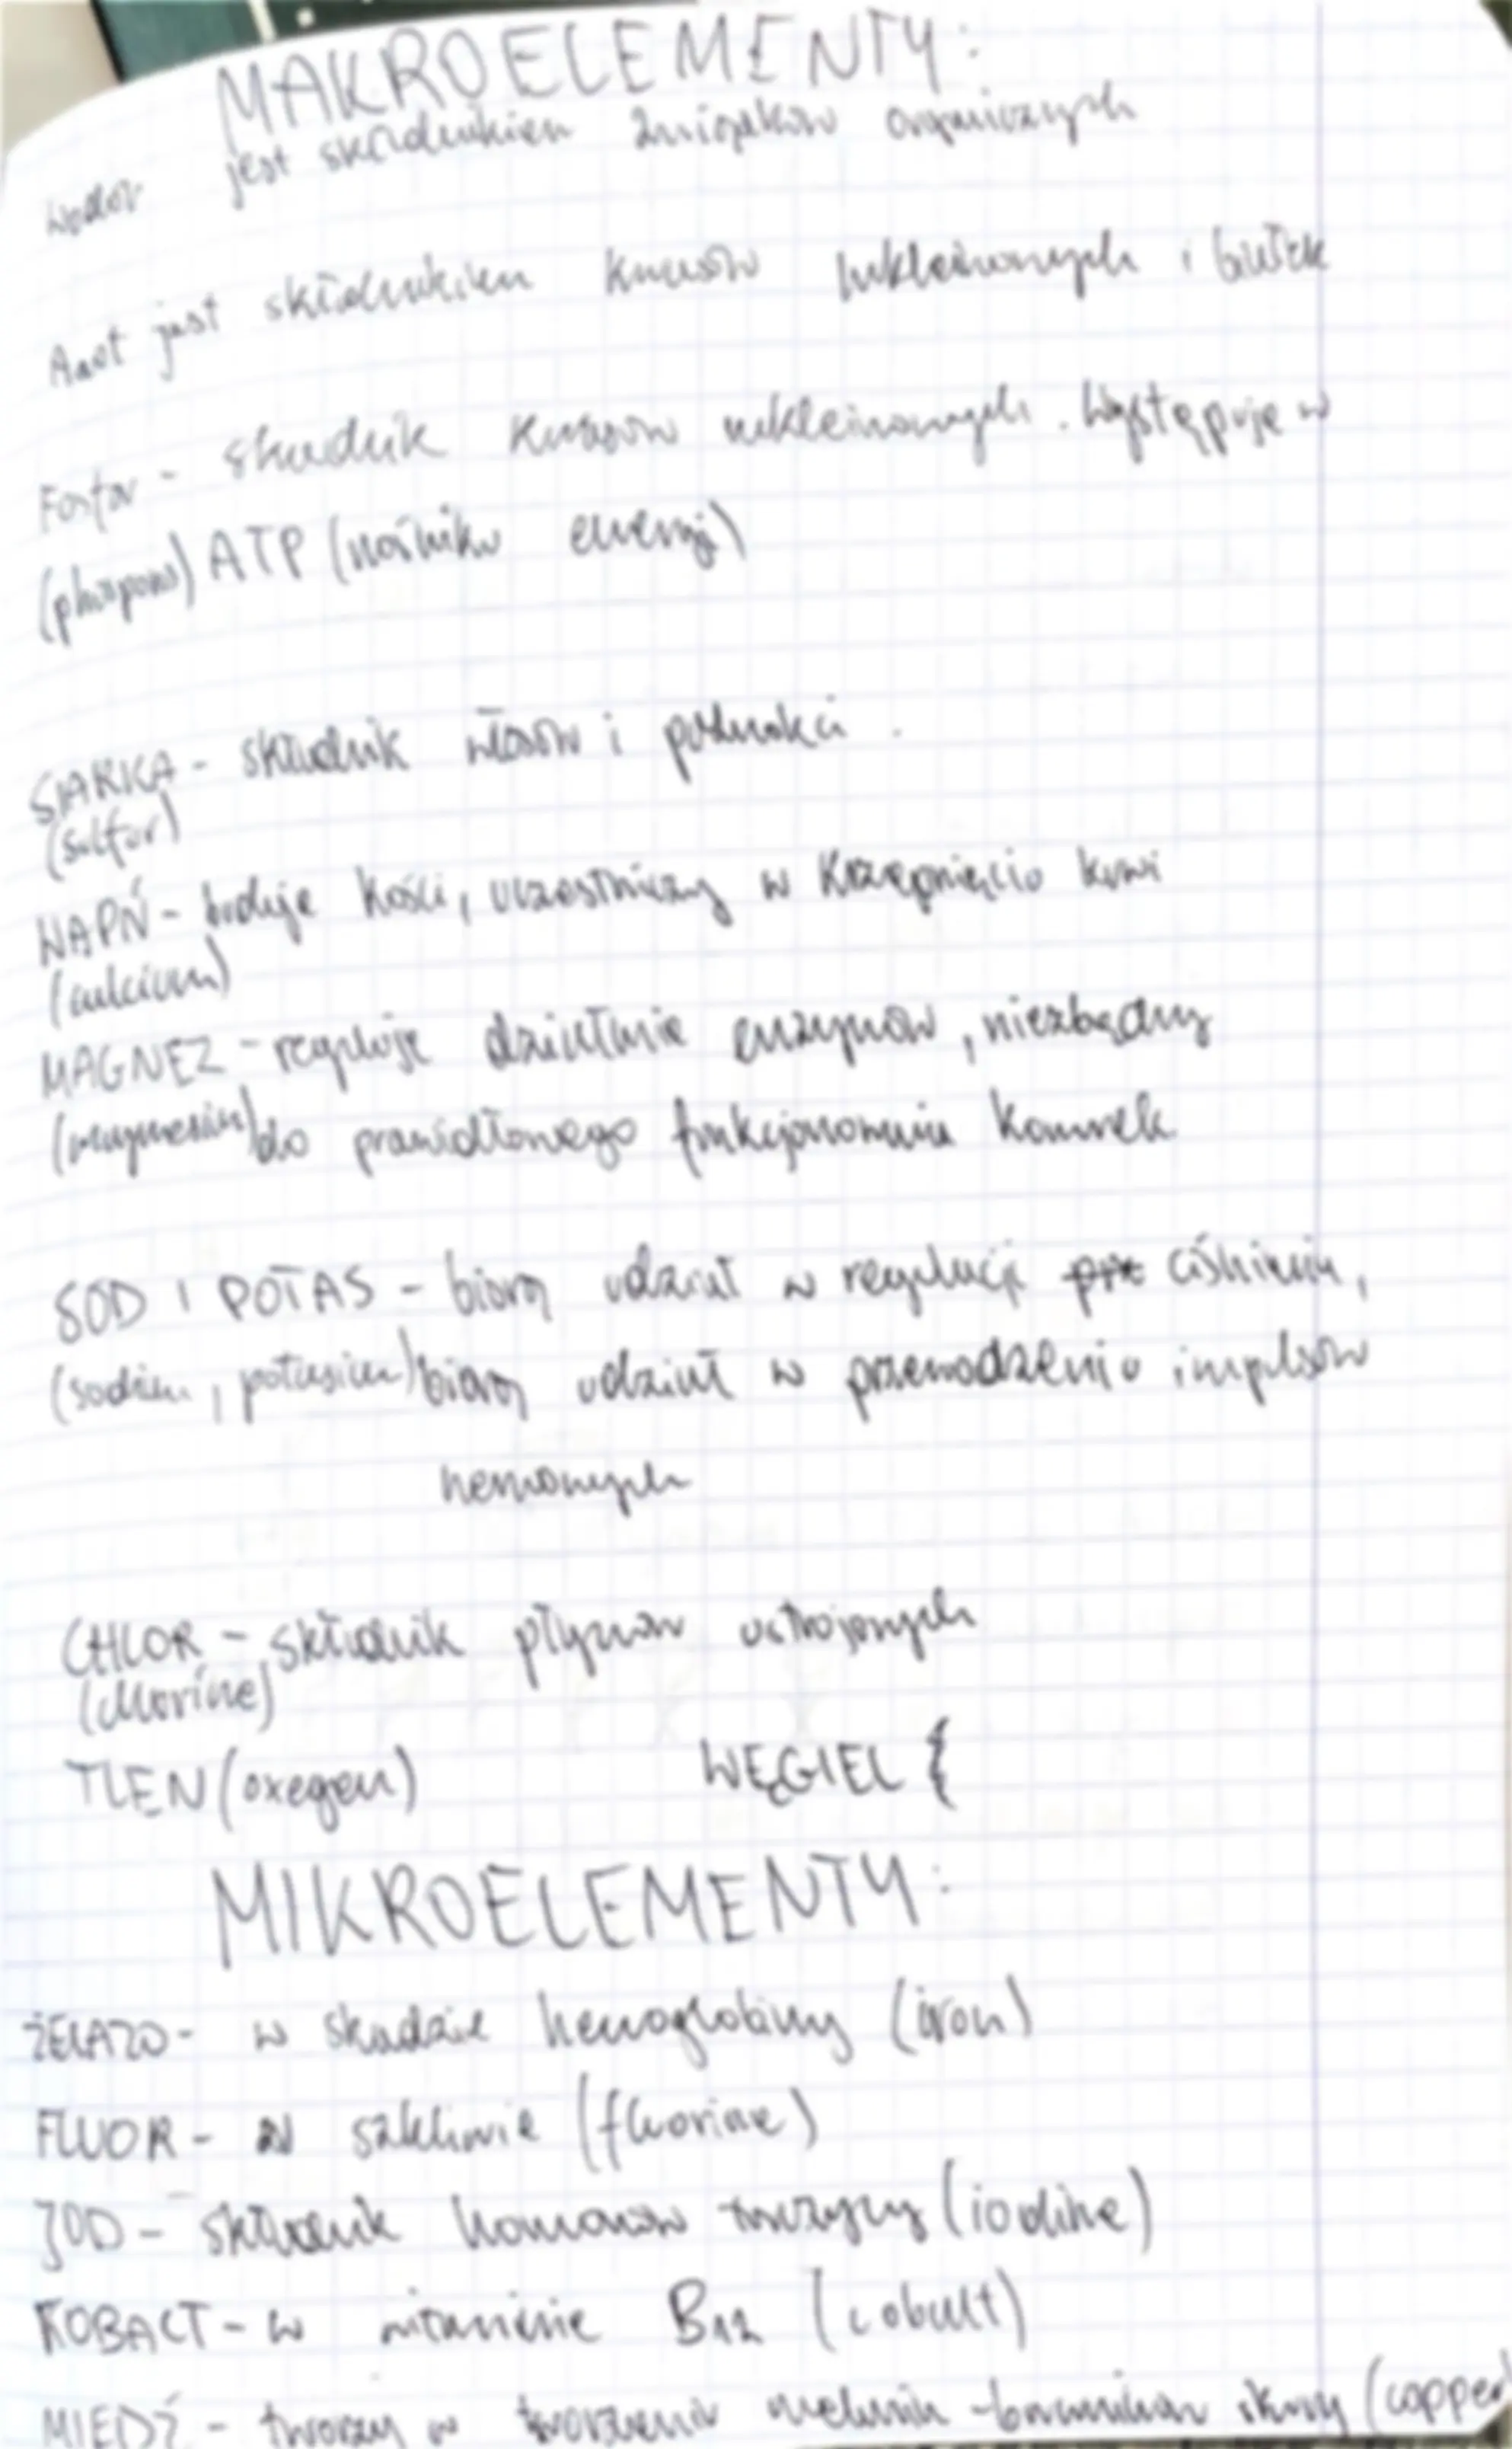 MAKROELEMENTY:
Wodór jest składnikiem związków organicznych
Azot jest składnikiem kwasów nukleinowych i białek
Fosfor - składnik kwasów nukleinowych. Występuje w
ATP (nośniku energii)
SIARKA - składnik włosów i paznokci.
(sulfur)
WAPŃ - buduje kości, uczestniczy w krzepnięciu krwi
(calcium)
MAGNEZ - reguluje działanie enzymów, niezbędny
do prawidłowego funkcjonowania komórek
SÓD I POTAS - biorą udział w regulacji ciśnienia,
(sodium, potasium) biorą udział w przewodzeniu impulsów
nerwowych
CHLOR - składnik płynów ustrojowych
(chlorine)
TLEN (oxegen) WĘGIEL {
MIKROELEMENTY:
ŻELAZO - w skadzie hemoglobiny (iron)
FLUOR - w szkliwie (fluorine)
JOD - składnik hormonów tarczycy (iodine)
KOBALT - w witaminie B12 (cobalt)
MIEDŹ - tworzy w tworzeniu skóry (copper)